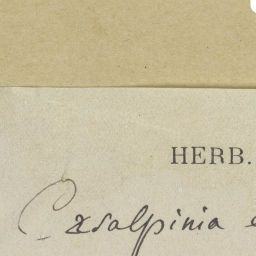 HERB.
Cæsalpinia